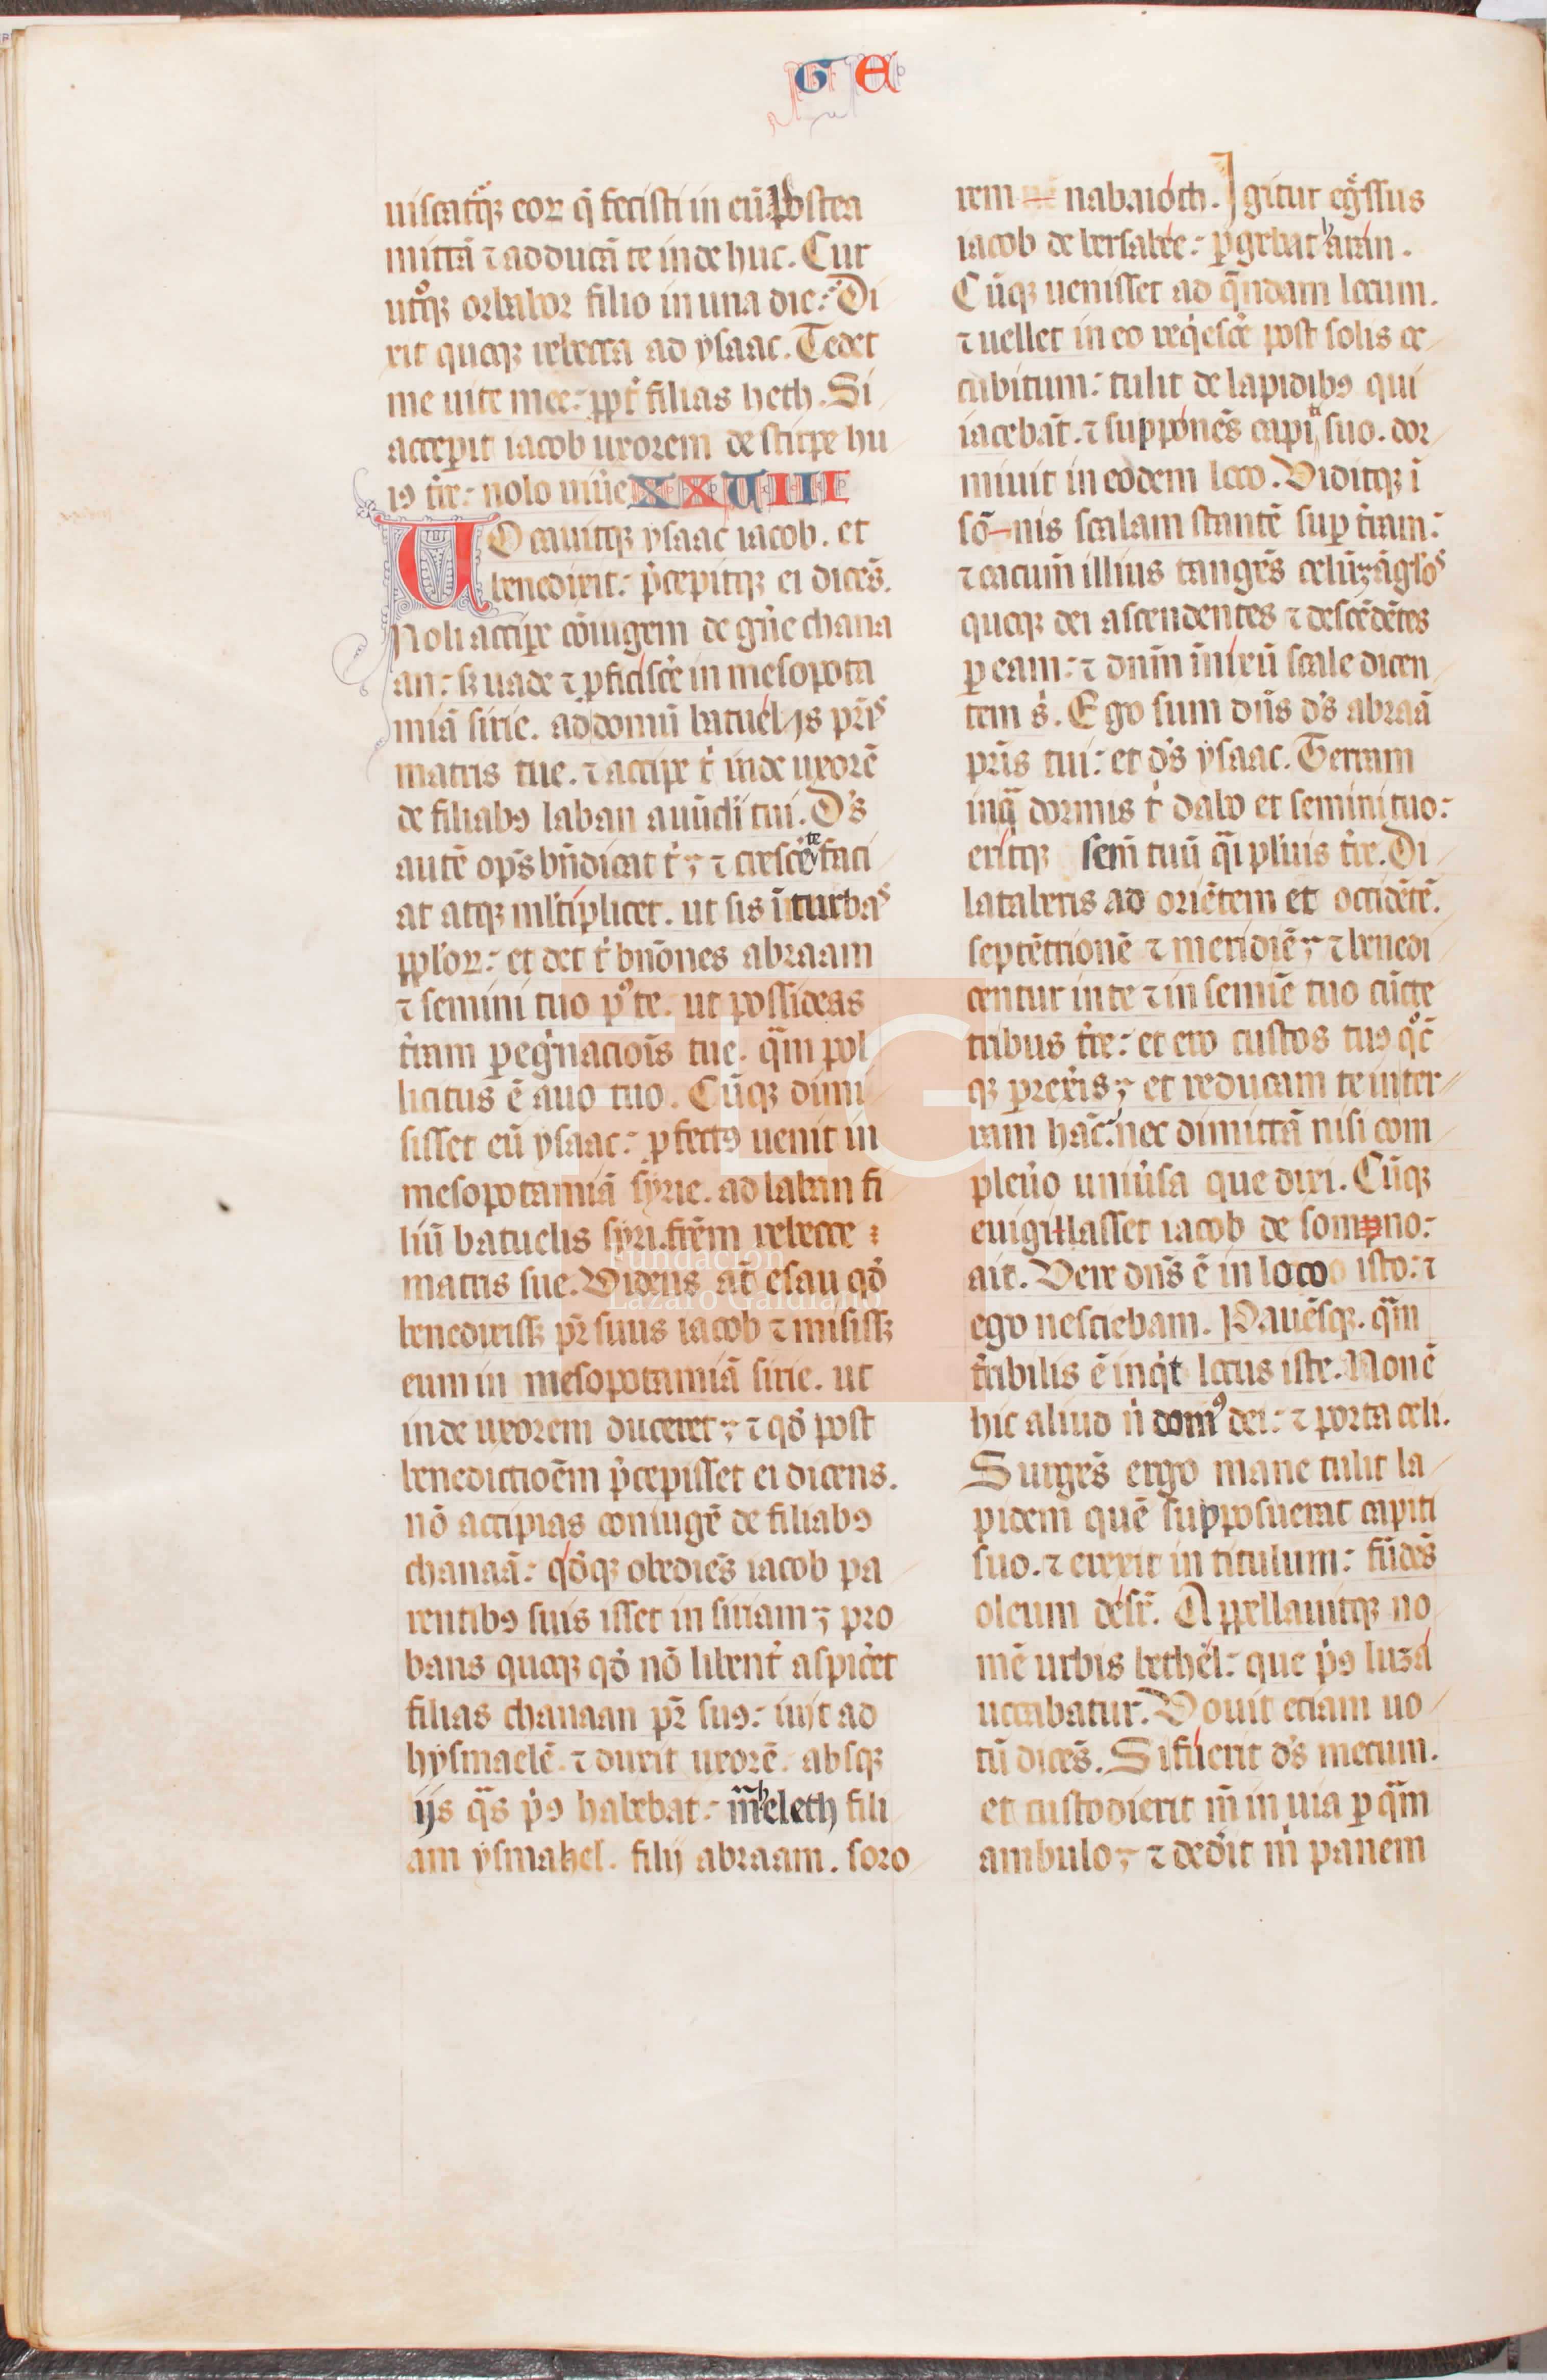 G E
uiscat᷒qꝫ eoꝝ q̄ fecisti in eū. Postea
mittā ⁊ adducā te inde huc. Cur
utͦqꝫ orbabor filio in una die: Di
xit quoqꝫ rebecca ad ysaac. Tedet
me uite mee: ꝓpt̉ filias heth. Si
acceꝑit iacob uxorem de stirpe hu
iꝰ t̉re: nolo uiủe XXVIII
Uocauitqꝫ ysaac iacob. et
benedixit: p̉cepitqꝫ ei dicēs.
Noli accipe cōiugem de gn̄e chana
an: sꝫ uade ⁊ ꝓficiscē in mesopota
miā sirie. ad domū batuel ys pr̄is
matris tue. ⁊ accipe t̉ inde uxorē
de filiabꝰ laban auūcli tui. D̉s
autē op̄s bn̄dicat t̉; ⁊ crescēte faci
at atqꝫ ml̉tiplicet. ut sis ī turbas
ppl̉oꝝ: et det t̉ bn̄ōnes abraam
⁊ semini tuo pͦ te. ut possideas
t̉ram ꝑeg̉nacioīs tue. qͣm pol
licitus ē auo tuo. Cūqꝫ dimi
sisset eū ysaac: ꝓfectꝰ uenit in
mesopotamiā syrie. ad laban fi
liū batuelis syri. frēm rebecce
matris sue. Videns at̄ esau qđ
benedixissꝫ pr̄ suus iacob ⁊ misissꝫ
eum in mesopotamiā sirie. ut
inde uxorem duceret; ⁊ qđ post
benedictioēm p̉cepisset ei dicens.
nō accipias coniugē de filiabꝰ
chanaā: qđqꝫ obediēs iacob pa
rentibꝰ suis isset in siriam; pro
bans quoqꝫ qđ nō libent̉ aspic̉et
filias chanaan pr̄ suꝰ: iuit ad
hysmaelē. ⁊ duxit uxorē. absqꝫ
ijs qͣs p̉ꝰ habebat: mͣheleth fili
am ysmahel. filij abraam. soro
rem nabaioth. Igitur eg̉ssus
iacob de bersabee: ꝑgebat haran.
Cūqꝫ uenisset ad q̄ndam locum.
⁊ uellet in eo req̉escē post solis oc
cubitum: tulit de lapidibꝰ qui
iacebāt. ⁊ supponēs capiti suo. dor
miuit in eodem loco. Viditqꝫ ī
sōnis scalam stantē suꝑ t̉ram:
⁊ cacum̄ illius tangēs celū; āgl̉os
quoqꝫ dei ascendentes ⁊ descēdētes
ꝑ eam: ⁊ dnm̄ īnixū scale dicen
tem s̉. Ego sum dn̄s d̉s abraā
pr̄is tui: et d̉s ysaac. Terram
in qͣ dormis t̉ dabo et semini tuo:
eritqꝫ sem̄ tuū qͣi pl̉uis t̉re. Di
lataberis ad oriētem et occidētē.
septētrionē ⁊ meridiē; ⁊ benedi
centur in te ⁊ in semīe tuo cūcte
tribus t̉re: et ero custos tuꝰ qͦcū
qꝫ ꝑrexīs; et reducam te in ter
ram hāc: nec dimittā nisi com
pleủo uniủsa que dixi. Cūqꝫ
euigillasset iacob de sompno:
ait. Vere dn̄s ē in loco isto: ⁊
ego nesciebam. Pauēsqꝫ. qͣm
t̉ribilis ē inq̉t locus iste. Non ē
hic aliud n̉ domꝰ dei: ⁊ porta celi.
Surgēs ergo mane tulit la
pidem quē supposuerat capiti
suo. ⁊ erexit in titulum: fūdēs
oleum desr̄. Appellauitqꝫ no
mē urbis bethel: que p̉ꝰ luza
uocabatur. Vouit etiam uo
tū dicēs. Si fuerit d̉s mecum.
et custodierit m̄ in uia ꝑ qͣm
ambulo; ⁊ ded̉it m̉ panem
FLG
Fundación
Lázaro Galdiano